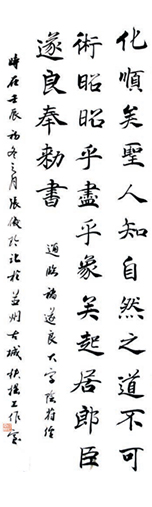 化順矣聖人知自然之道不可
術昭昭乎盡乎象矣起居郎臣
遂良奉勅書
通臨褚遂良大字陰符經
時在壬辰初冬之月張俊